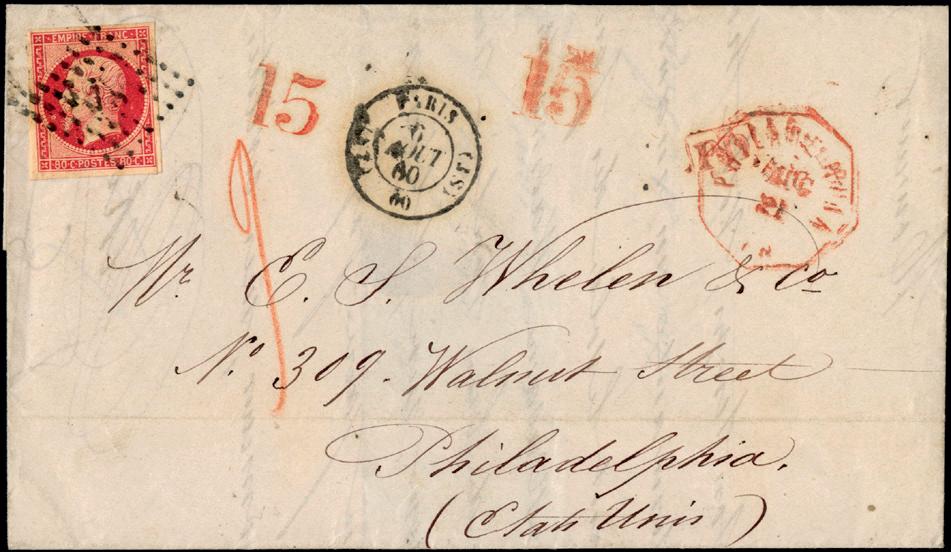 EMPIRE FRANC
80·C·POSTES·80·C
15
PARIS
6
AOUT
60
(60)
15
PHILADELPHIA
AUG
21
9
Mr. E. S. Whelen & Co
No. 309. Walnut Street
Philadelphia.
(Etats Unis)